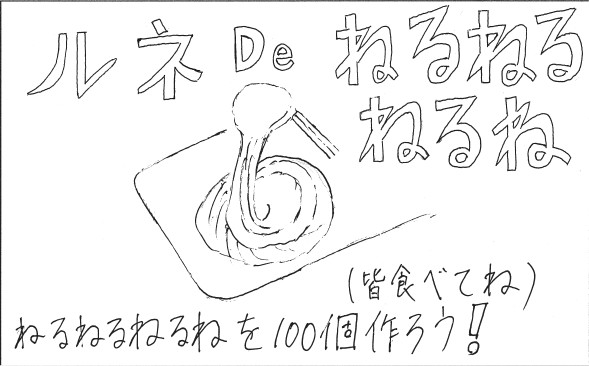 ルネ De ねるねる
ねるね
(皆食べてね)
ねるねるねるねを100個作ろう!